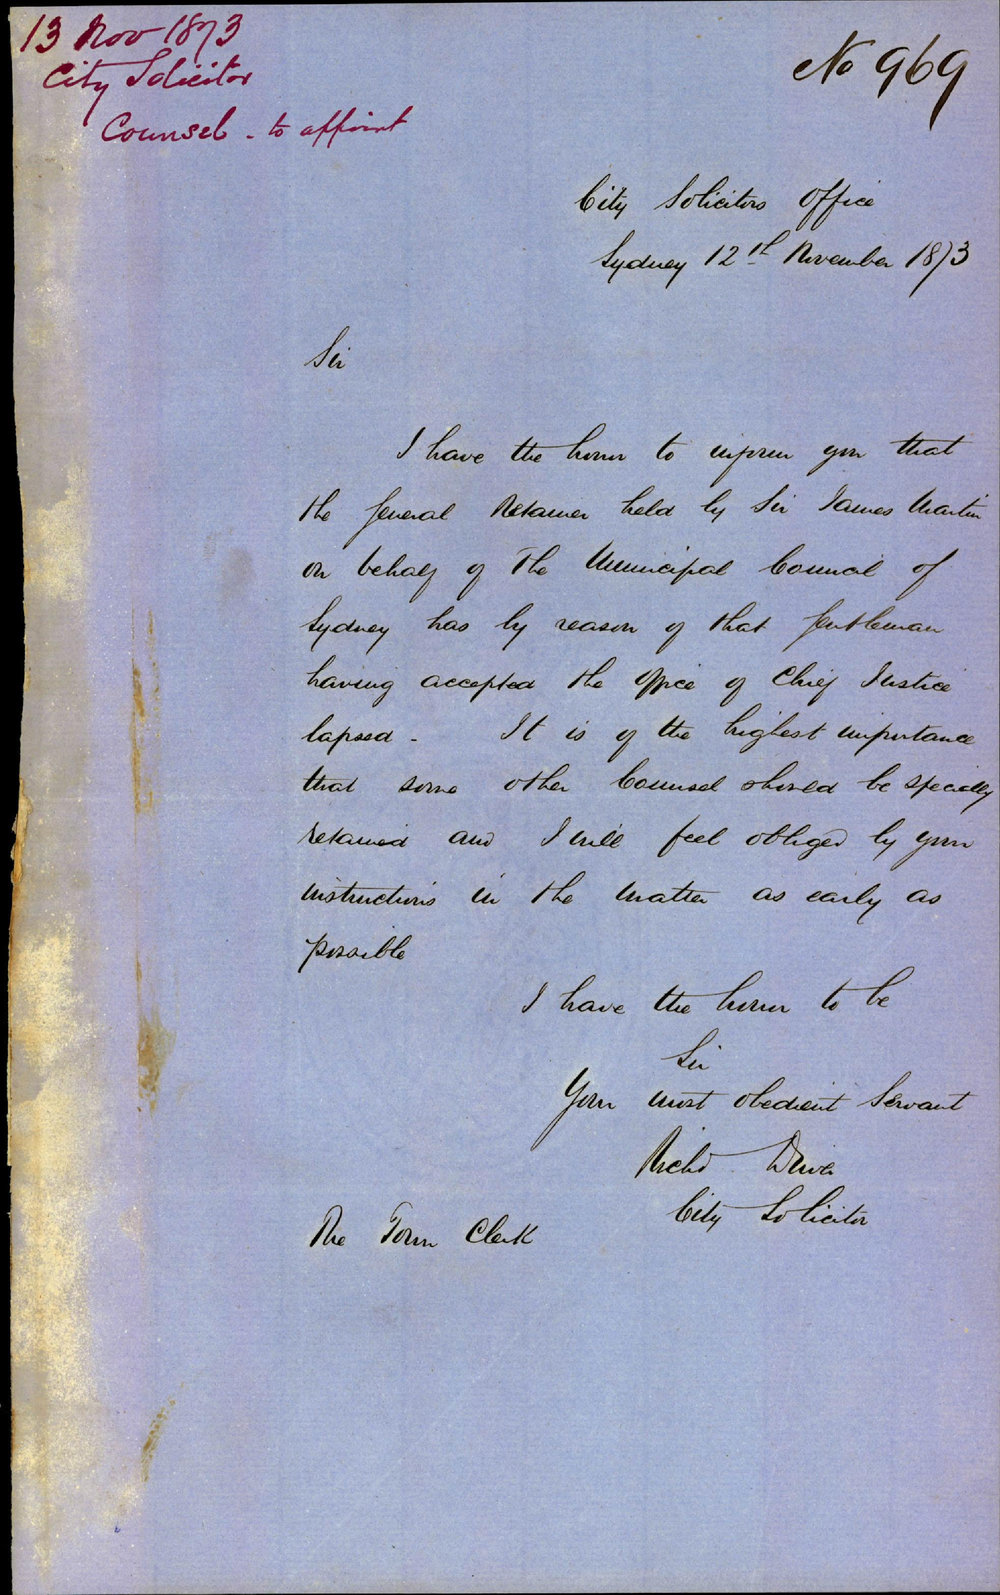 13 Nov 1873
City Solicitor
Counsel - to appoint
No 969
City Solicitors Office
Sydney 12th November 1873
Sir
I have the honor to inform you that
the General Retainer held by Sir James Martin
on behalf of The Municipal Council of
Sydney has by reason of that Gentleman
having accepted the Office of Chief Justice
lapsed - It is of the highest importance
that some other Counsel should be specially
retained and I will feel obliged by your
instructions in the matter as early as
possible
I have the honor to be
Sir
Your most obedient Servant
Richd Driver
City Solicitor
The Town Clerk